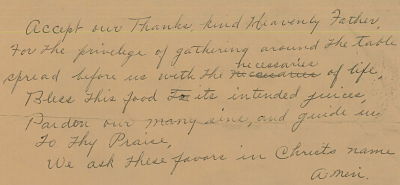 Accept our Thanks, kind Heavenly Father,
For the privilege of gathering around the table
necessaries
spread before us with the necessaries of life,
Bless this food To its intended juices,
Pardon our many sins, and guide us
To Thy Praise,
We ask these favors in Christs name
Amen.